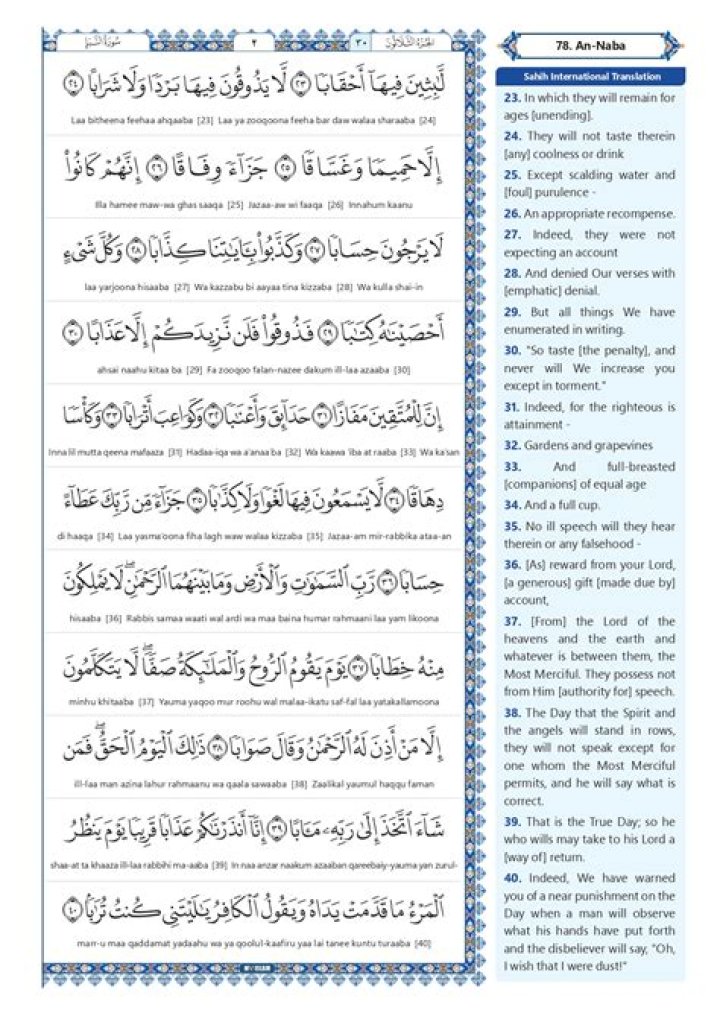 سُورَةُ النَّبَإِ
٢
٣٠
الجزء الثلاثون
لَّٰبِثِينَ فِيهَآ أَحْقَابًا ۝٢٣ لَّا يَذُوقُونَ فِيهَا بَرْدًا وَلَا شَرَابًا ۝٢٤
Laa bitheena feehaa ahqaaba [23] Laa ya zooqoona feeha bar daw walaa sharaaba [24]
إِلَّا حَمِيمًا وَغَسَّاقًا ۝٢٥ جَزَآءً وِفَاقًا ۝٢٦ إِنَّهُمْ كَانُوا۟
Illa hamee maw-wa ghas saaqa [25] Jazaa-aw wi faaqa [26] Innahum kaanu
لَا يَرْجُونَ حِسَابًا ۝٢٧ وَكَذَّبُوا۟ بِـَٔايَٰتِنَا كِذَّابًا ۝٢٨ وَكُلَّ شَىْءٍ
laa yarjoona hisaaba [27] Wa kazzabu bi aayaa tina kizzaba [28] Wa kulla shai-in
أَحْصَيْنَٰهُ كِتَٰبًا ۝٢٩ فَذُوقُوا۟ فَلَن نَّزِيدَكُمْ إِلَّا عَذَابًا ۝٣٠
ahsai naahu kitaa ba [29] Fa zooqoo falan-nazee dakum ill-laa azaaba [30]
إِنَّ لِلْمُتَّقِينَ مَفَازًا ۝٣١ حَدَآئِقَ وَأَعْنَٰبًا ۝٣٢ وَكَوَاعِبَ أَتْرَابًا ۝٣٣ وَكَأْسًا
Inna lil mutta qeena mafaaza [31] Hadaa-iqa wa a'anaa ba [32] Wa kaawa 'iba at raaba [33] Wa ka'san
دِهَاقًا ۝٣٤ لَّا يَسْمَعُونَ فِيهَا لَغْوًا وَلَا كِذَّٰبًا ۝٣٥ جَزَآءً مِّن رَّبِّكَ عَطَآءً
di haaqa [34] Laa yasma'oona fiha lagh waw walaa kizzaba [35] Jazaa-am mir-rabbika ataa-an
حِسَابًا ۝٣٦ رَّبِّ ٱلسَّمَٰوَٰتِ وَٱلْأَرْضِ وَمَا بَيْنَهُمَا ٱلرَّحْمَٰنِ ۖ لَا يَمْلِكُونَ
hisaaba [36] Rabbis samaa waati wal ardi wa maa baina humar rahmaani laa yam likoona
مِنْهُ خِطَابًا ۝٣٧ يَوْمَ يَقُومُ ٱلرُّوحُ وَٱلْمَلَٰٓئِكَةُ صَفًّا ۖ لَّا يَتَكَلَّمُونَ
minhu khitaaba [37] Yauma yaqoo mur roohu wal malaa-ikatu saf-fal laa yatakallamoona
إِلَّا مَنْ أَذِنَ لَهُ ٱلرَّحْمَٰنُ وَقَالَ صَوَابًا ۝٣٨ ذَٰلِكَ ٱلْيَوْمُ ٱلْحَقُّ ۖ فَمَن
ill-laa man azina lahur rahmaanu wa qaala sawaaba [38] Zaalikal yaumul haqqu faman
شَآءَ ٱتَّخَذَ إِلَىٰ رَبِّهِۦ مَـَٔابًا ۝٣٩ إِنَّآ أَنذَرْنَٰكُمْ عَذَابًا قَرِيبًا يَوْمَ يَنظُرُ
shaa-at ta khaaza ill-laa rabbihi ma-aaba [39] In naa anzar naakum azaaban qareebaiy-yauma yan zurul-
ٱلْمَرْءُ مَا قَدَّمَتْ يَدَاهُ وَيَقُولُ ٱلْكَافِرُ يَٰلَيْتَنِى كُنتُ تُرَٰبًۢا ۝٤٠
marr-u maa qaddamat yadaahu wa ya qoolul-kaafiru yaa lai tanee kuntu turaaba [40]
78. An-Naba
Sahih International Translation
23. In which they will remain for
ages [unending].
24. They will not taste therein
[any] coolness or drink
25. Except scalding water and
[foul] purulence -
26. An appropriate recompense.
27. Indeed, they were not
expecting an account
28. And denied Our verses with
[emphatic] denial.
29. But all things We have
enumerated in writing.
30. "So taste [the penalty], and
never will We increase you
except in torment."
31. Indeed, for the righteous is
attainment -
32. Gardens and grapevines
33. And full-breasted
[companions] of equal age
34. And a full cup.
35. No ill speech will they hear
therein or any falsehood -
36. [As] reward from your Lord,
[a generous] gift [made due by]
account,
37. [From] the Lord of the
heavens and the earth and
whatever is between them, the
Most Merciful. They possess not
from Him [authority for] speech.
38. The Day that the Spirit and
the angels will stand in rows,
they will not speak except for
one whom the Most Merciful
permits, and he will say what is
correct.
39. That is the True Day; so he
who wills may take to his Lord a
[way of] return.
40. Indeed, We have warned
you of a near punishment on the
Day when a man will observe
what his hands have put forth
and the disbeliever will say, "Oh,
I wish that I were dust!"